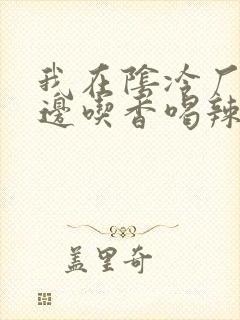 我在陰冷厂
邊喫香喝辣
盖里奇